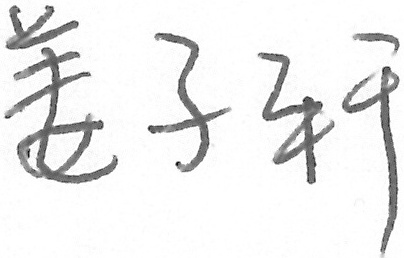 姜子轩